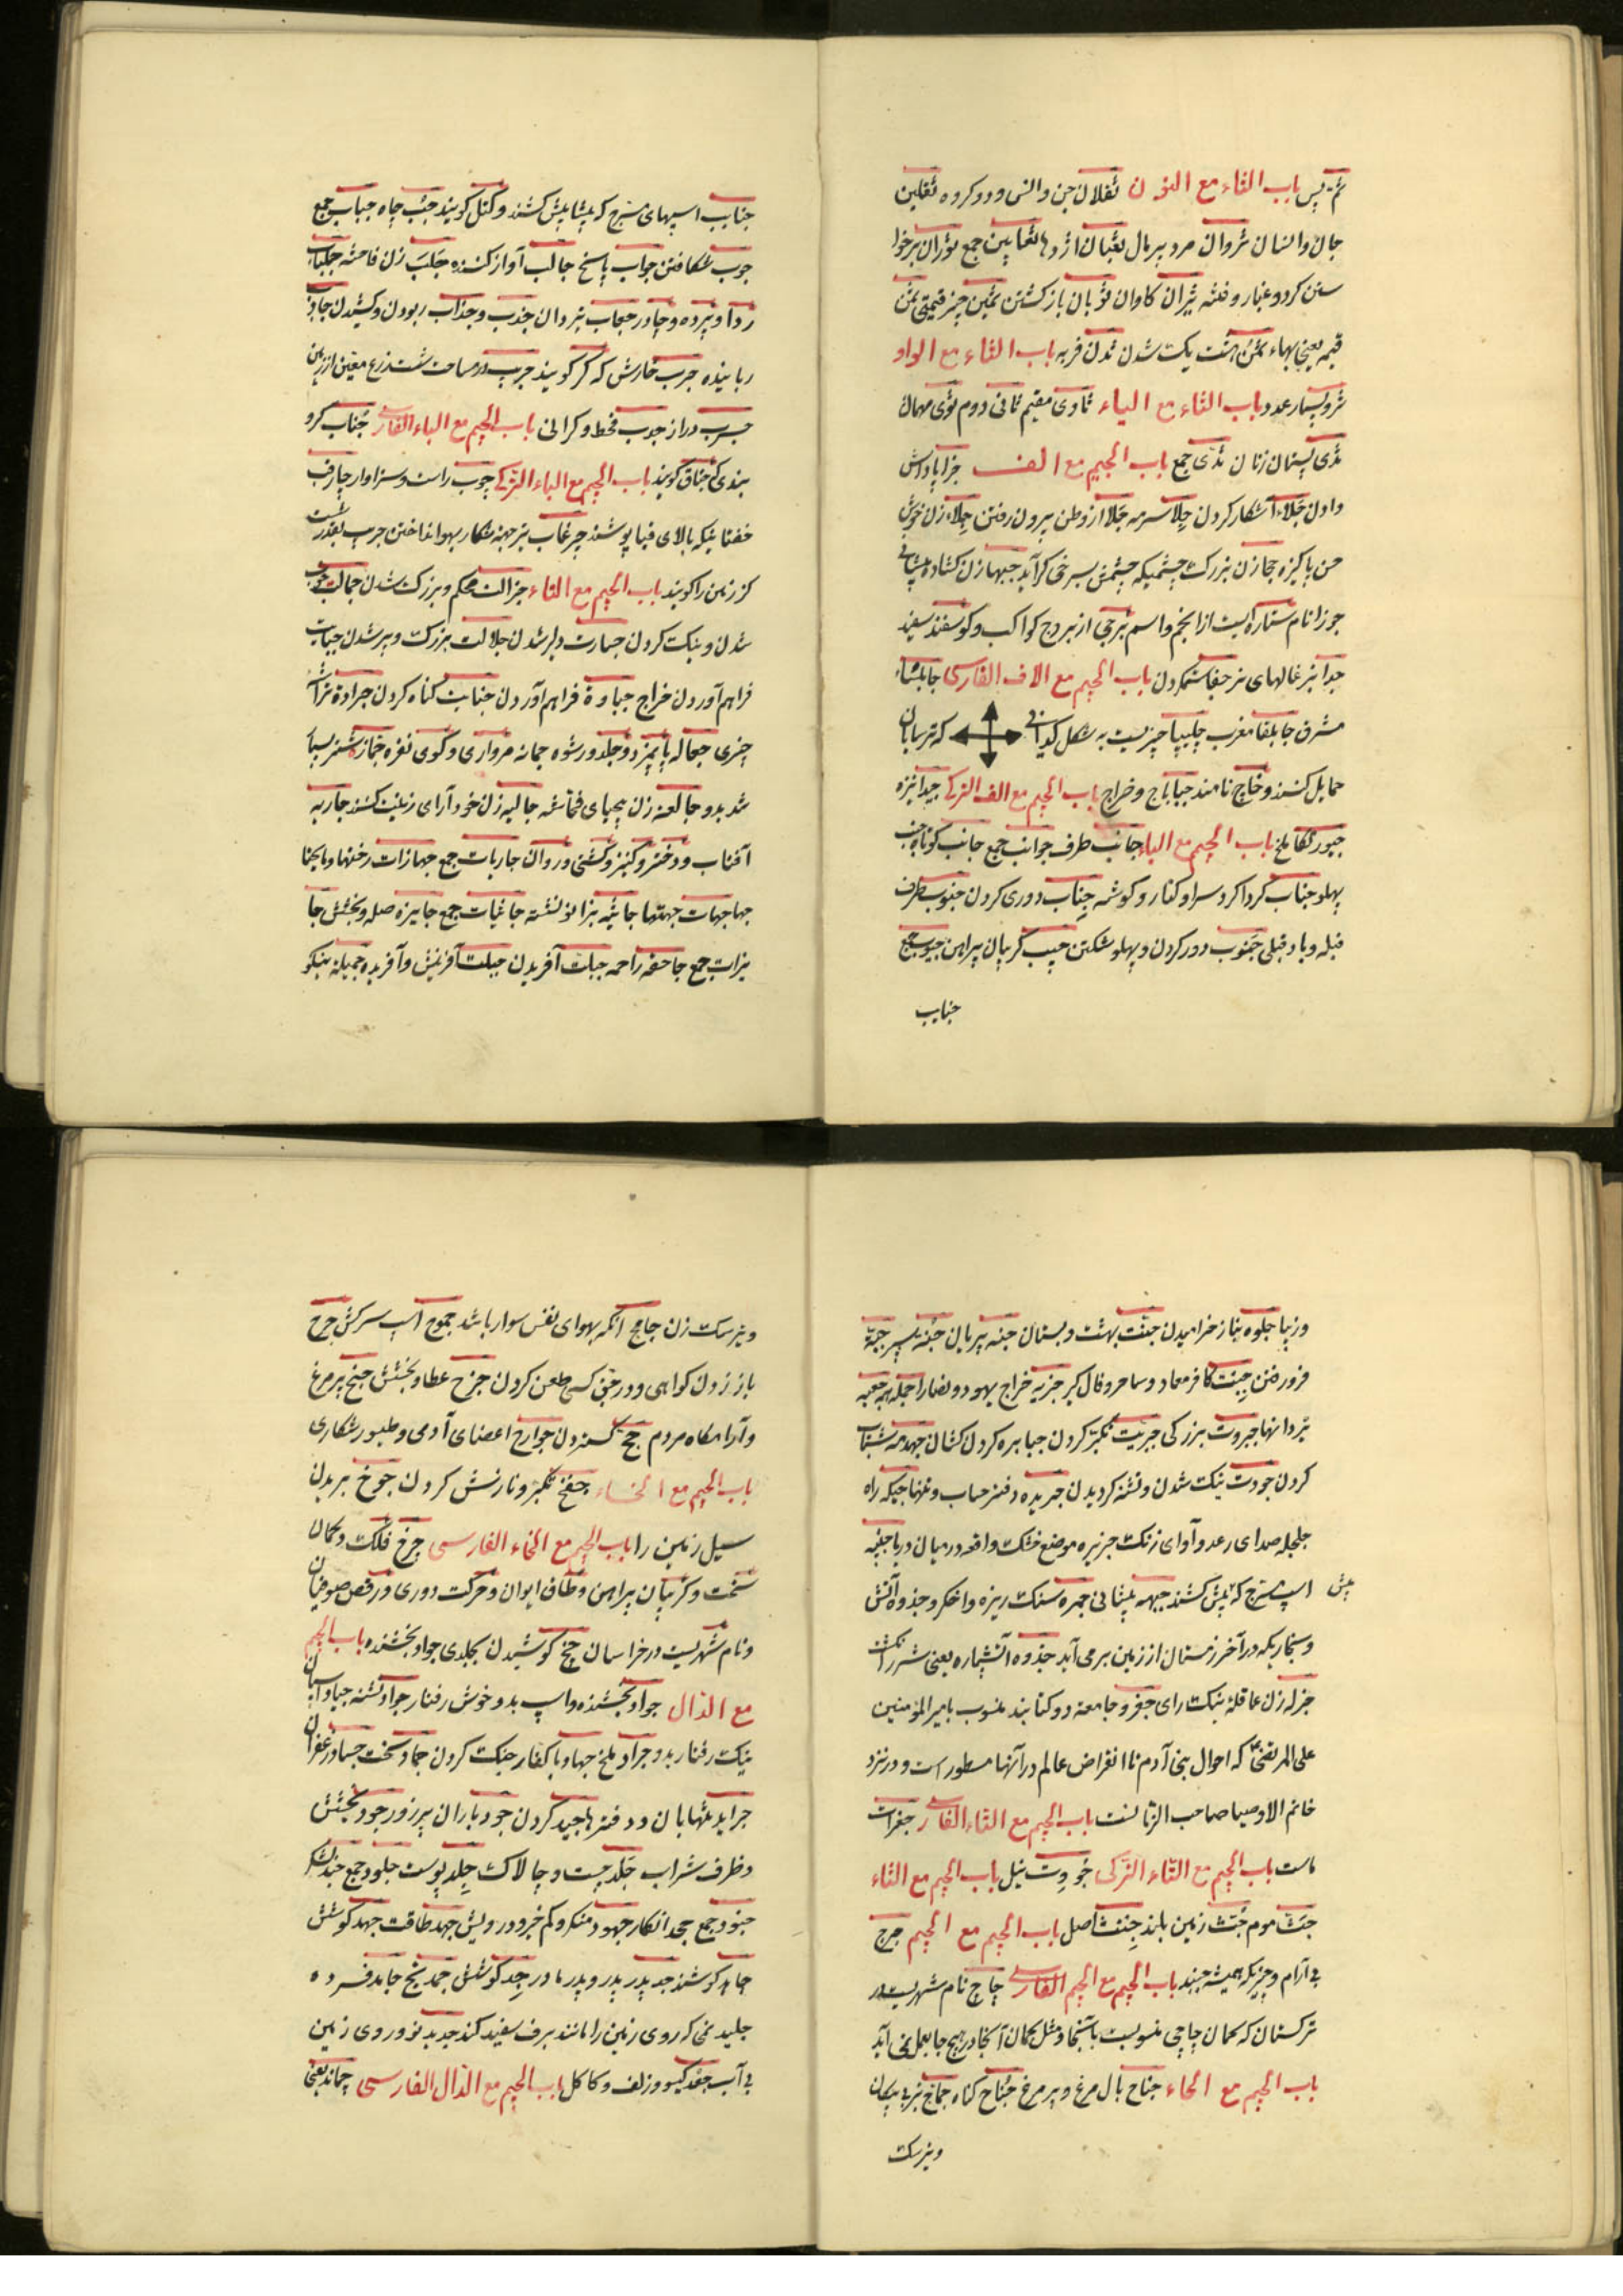 ثم پس باب الثاء مع النون ثقلان جن و انس و دو کروه ثقلین
جان و انسان ثروان مرد پر مال ثعبان اژدها ثعابین جمع ثوران برخوا
ستن کرد و غبار و فتنه ثیران کاوان ثوبان باز کشتن ثمین چیز قیمتی ثمن
قیمه یعنی بهاء ثمن هشت یکت شدن ثدن فربه باب الثاء مع الواو
ثرو بسیار عدد باب الثاء مع الیاء ثاوی مقیم ثانی دوم ثوی مهمان
ثدی پستان زنان ثدی جمع باب الجیم مع الف جزا پاداش
دادن جلاء آشکار کردن جلا سرمه جلا از وطن بیرون رفتن جلاء زن خوش
حسن پاکیزه جحا زن بزرکت چشمیکه چشمش بسرخی کراید جبها زن کشاده پیشانی
جوزا نام ستاره ایست از انجم و اسم برجی از بروج کواکب و کوسفند سفید
جدا بزغالهای نر جفا ستم کردن باب الجیم مع الاف الفارسی جابلسا
مشرق جابلقا مغرب چلیپا چیزیست به شکل که ترسایان
حمایل کنند و خاج نامند جبا باج و خراج باب الجیم مع الف الترکی جیدا نیزه
جبور تکا ملخ باب الجیم مع الباء جانب طرف جوانب جمع جانب کوتاه جنب
پهلو جناب کرداکرد سرا و کنار و کوشه جناب دوری کردن جنوب طرف
قبله و باد قبلی جنوب دور کردن و پهلو شکستن جیب کریبان پیراهن جیوب جمع
جنایب
جنایب اسپهای مسرج که پیشاپیش کشند و کتل کویند جب چاه جباب جمع
جوب شکافتن جواب پاسخ جالب آواز کننده جلب زن فاحشه جلباب
ردا و پرده و چادر حجاب بردان جذب و جذاب ربودن و کشیدن جاذب
رباینده جرب خارش که کر کویند جریب در مساحت شصت زرع معین از زمین
جسرب دراز جدب قحط و کرانی باب الجیم مع الباء الفارسی جناب کرو
بندی که جناق کویند باب الجیم مع الباء الترکی چوب راست و سزاوار چارب
خفتانیکه بالای قبا پوشند چرغاب تیر جهته شکار بهوا انداختن جریب بقدر شصت
کز زمین را کویند باب الجیم مع التاء جزالت محکم و بزرکت شدن جمالت خوب
شدن و نیکت کردن جسارت دلیر شدن جلالت بزرکت و پیر شدن جبایت
فراهم آوردن خراج جباوة فراهم آوردن جنایت کناه کردن جرادة تراشه
چیزی جعاله پایمزد و جلد و رشوه جمانه مرواری و کوی نقره جمازه شتر بسیار
شد بدو جالعه زن بیحیای فحاشه جالیه زن خود آرای زینت کننده جاریه
آفتاب و دختر و کنیز و کشتی و روان جاریات جمع جهازات رختها و مایحتا
جها جهات جهتها جاثیه بزانو نشسته جاثیات جمع جایزه صله و بخشش جا
یزات جمع جاحفه راحمه جبلت آفریدن جبلت آفرینش و آفریده جمیله نیکو
و زیبا جلوه بناز خرامیدن جنت بهشت و بستان جنه پریان جنه سپر جبه
فرو رفتن جبت کافر معاد و ساحر و فال کیر جزیه خراج یهود و نصارا جمله همه جعبه
تیر دانها جبروت بزرکی جبریت تکبر کردن جبابره کردن کشان جهدمه شتاب
کردن جودت نیکت شدن و تشنه کردیدن جریده دفتر حساب و تنها چنکه راه
جلجله صدای رعد و آوای زنکت جزیره موضع خشکت واقعه در میان دریا جنیبه
اسپ مسرج که پیش کشند جبهه پیشانی جمره سنکت ریزه و اخکر و جذوه آتش
و بخاریکه در آخر زمستان از زمین برمی آید جذوه آتشپاره یعنی شرر آتش
جزله زن عاقله نیکت رای جفر و جامعه دو کتابند منسوب بامیر المؤمنین
علی المرتضی که احوال بنی آدم تا انقراض عالم در آنها مسطور است و در نزد
خاتم الاوصیا صاحب الزمانست باب الجیم مع التاء الفارسی جغرات
ماست باب الجیم مع التاء الترکی جووت نیل باب الجیم مع الثاء
جث موم جثث زمین بلند جنث اصل باب الجیم مع الجیم جرج
بی آرام و چیزیکه همیشه جنبد باب الجیم مع الجیم الفارسی چاچ نام شهریست در
ترکستان که کمان چاچی منسوبست بآنجا و مثل کمان آنجا در هیچ جا بعمل نمی آید
باب الجیم مع الحاء جناح بال مرغ و پر مرغ جناح کناه جماح تیر بی پیکان
و تیر سکت
و تیر سکت زن جامح آنکه بهوای نفس سوار باشد جموح اسپ سرکش جرح
باز زدن کواهی و در حق کسی طعن کردن جزح عطا و بخشش جنح پر مرغ
و آرامکاه مردم جح کستردن جوارح اعضای آدمی و طیور شکاری
باب الجیم مع الخاء جفخ تکبر و نازنش کردن جوخ بریدن
سیل زمین را باب الجیم مع الخاء الفارسی چرخ فلکت و کمان
سخت و کریبان پیراهن و طاق ایوان و حرکت دوری و رقص صوفیان
و نام شهریست در خراسان چخ کوشیدن بجلدی جواد بخشنده باب الجیم
مع الدال جواد بخشنده و اسپ بدو خوش رفتار جواد تشنه جیاد اسپان
نیکت رفتار بدو جراد ملخ جهاد با کفار جنکت کردن جماد سخت جساد زعفران
جراید تنهایان و دفترها جید کردن جود باران پر زور جود بخشش
و ظرف شراب جلد چست و چالاکت جلد پوست جلود جمع جند لشکر
جنود جمع جحد انکار جهود منکر و کم خیر و درویش جهد طاقت جهد کوشش
جاهد کوشنده جد پدر پدر و پدر مادر جد کوشش جمد یخ جامد فسرده
جلید نمی که روی زمین را مانند برف سفید کند جدید نو و روی زمین
بی آب جعد کیسو و زلف و کاکل باب الجیم مع الدال الفارسی چماند یعنی